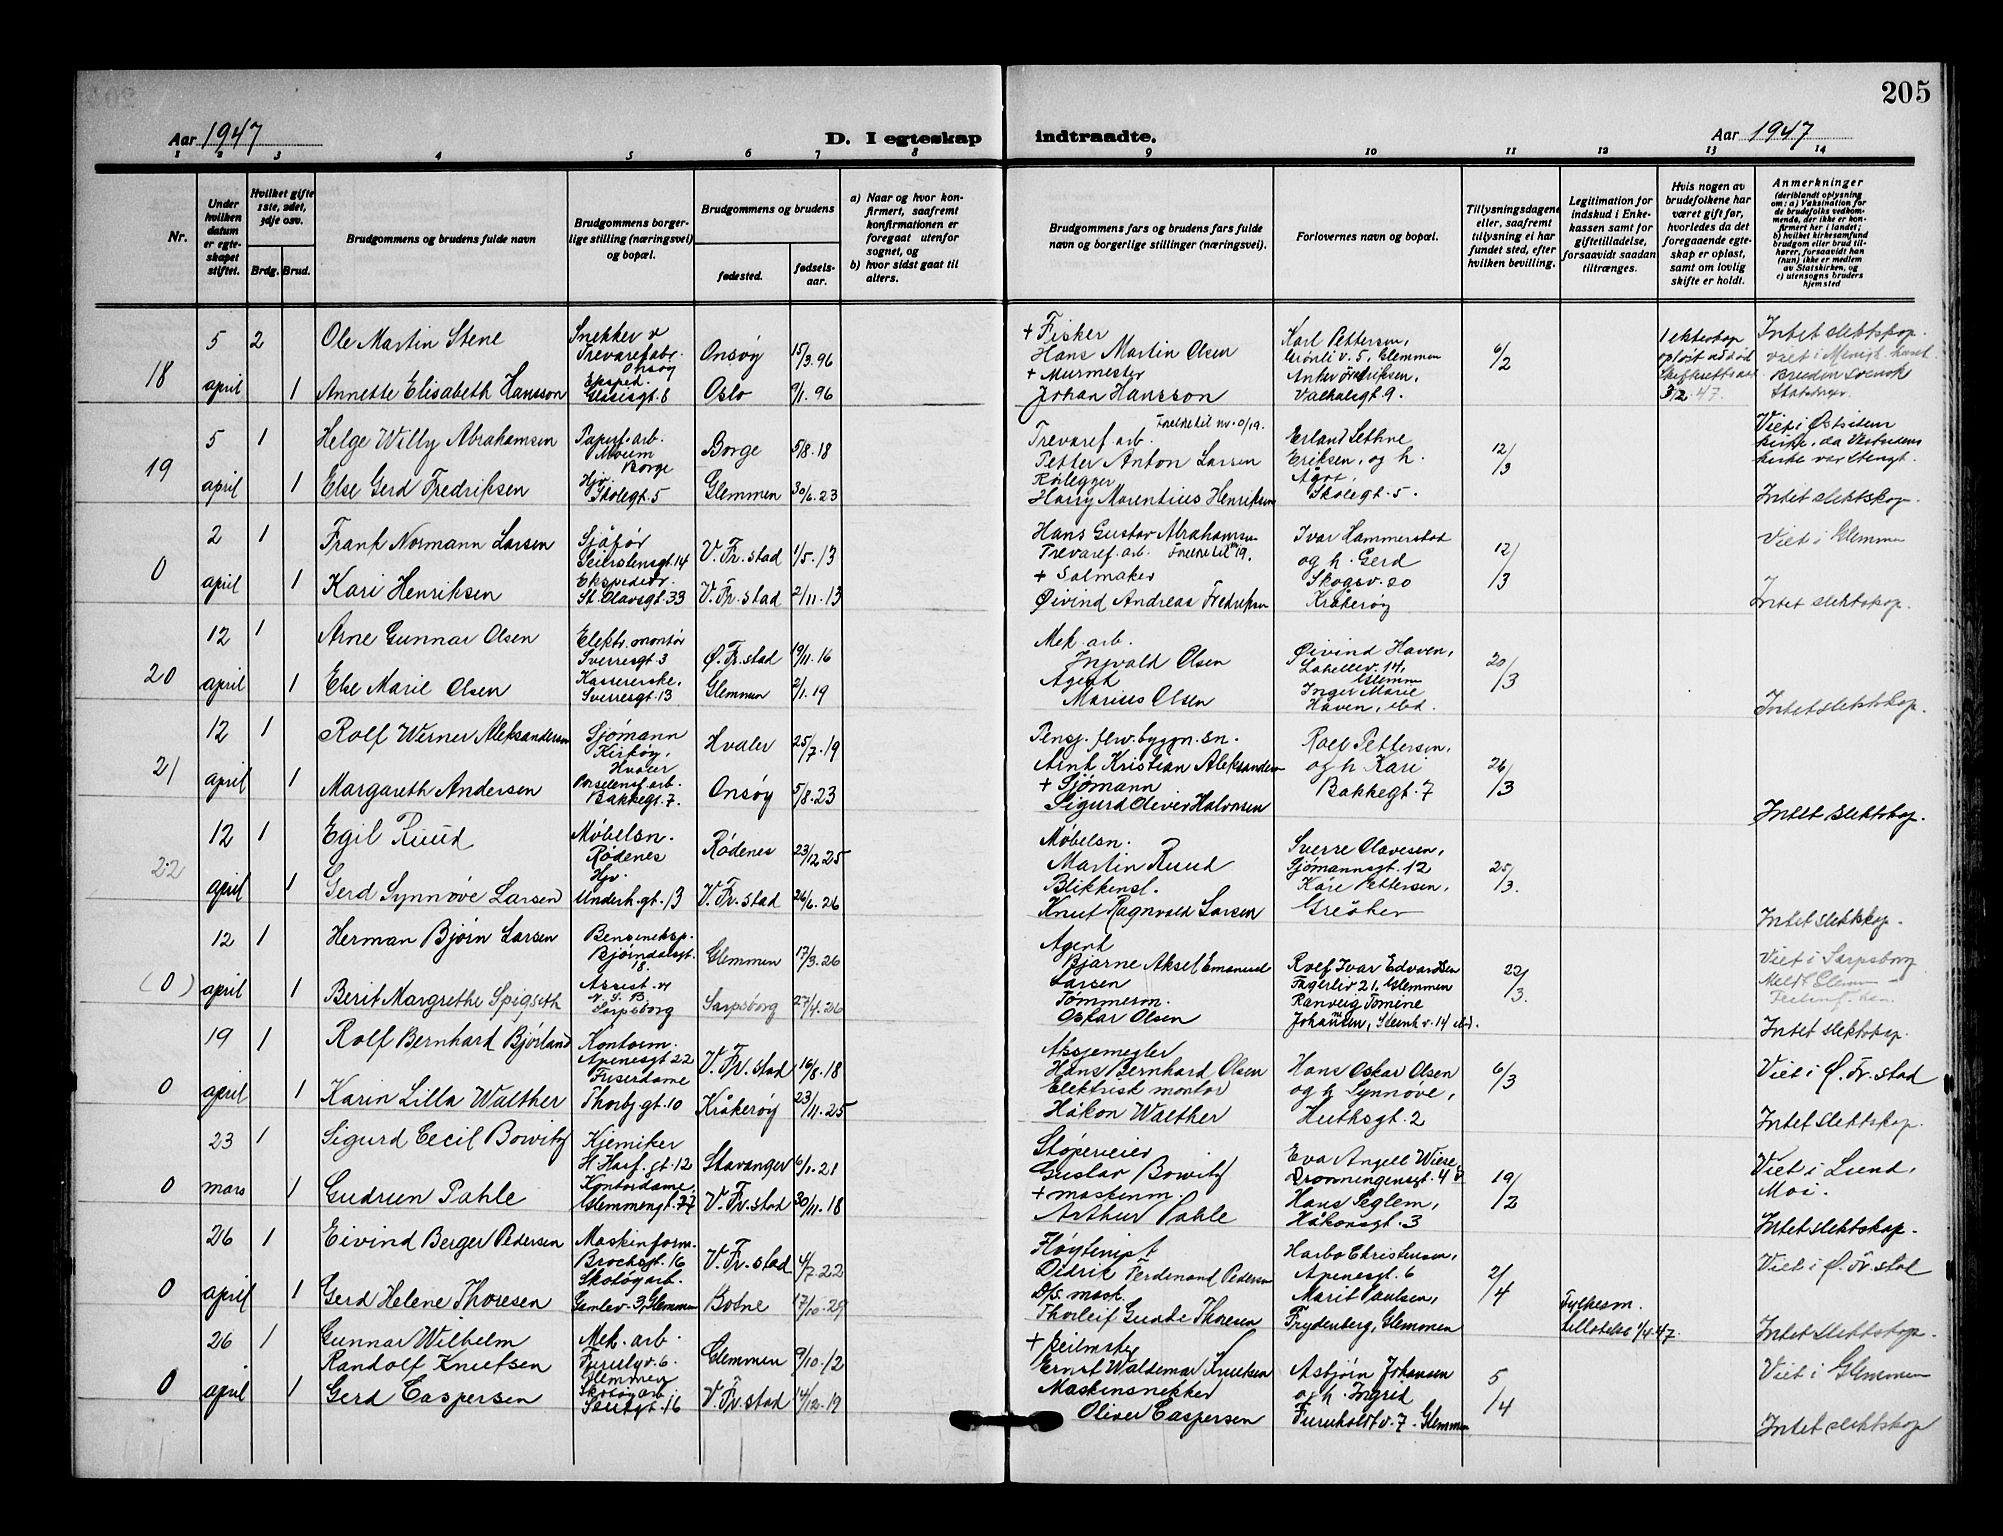 205
Aar 1947
D. I egteskap indtraadte.
Aar 1947
1 2 3 4 5 6 7 8 9 10 11 12 13 14
Nr.
Under hvilken datum er egteskapet stiftet.
Hvilket gifte 1ste, 2det, 3dje osv.
Brdg. Brud.
Brudgommens og brudens fulde navn
Brudgommens borgerlige stilling (næringsvei) og bopæl.
Brudgommens og brudens
fødested.
fødselsaar.
a) Naar og hvor konfirmert, saafremt konfirmationen er foregaat utenfor sognet, og
b) hvor sidst gaat til alters.
Brudgommens fars og brudens fars fulde navn og borgerlige stillinger (næringsvei).
Forlovernes navn og bopæl.
Tillysningsdagene eller, saafremt tillysning ei har fundet sted, efter hvilken bevilling.
Legitimation for indskud i Enkekassen samt for giftetilladelse, forsaavidt saadan tiltrænges.
Hvis nogen av brudefolkene har været gift før, hvorledes da det foregaaende egteskap er opløst, samt om lovlig skifte er holdt.
Anmerkninger
(deriblandt oplysning om: a) Vaksination for de brudefolks vedkommende, der ikke er konfirmert her i landet; b) hvilket kirkesamfund brudgom eller brud tilhører, forsaavidt han (hun) ikke er medlem av Statskirken, og c) utensogns bruders hjemsted
18
5 april
2
1
Ole Martin Stene
Annette Elisabeth Hansson
Snekker v
Trevarefabr.
Onsøy
Eksped.
Glasisgt. 8
Onsøy 15/3.96
Oslo 9/1.96
+ Fisker
Hans Martin Olsen
+ Murmester
Johan Hansson
Karl Pettersen,
Grønliv. 5, Glemmen
Valhalsgt 9.
6/2
1 ekteskap
opløst ved død
3/2.47.
Intet slektskap.
Bruden svensk
19
5 april
1
1
Helge Willy Abrahamsen
Else Gerd Fredriksen
Papirf. arb.
Moum
Borge
Hjv.
Skolegt. 5
Borge 5/8.18
Glemmen 30/6.23
Foreldre til nr. 0/19.
Trevaref. arb.
Petter Anton Larsen
Rørlegger
Harry Marentius Henriksen
Erland Sethne
Eriksen, og h.
Agot
Skolegt. 5.
12/3
Viet i Østsiden
kirke, da Vestsidens
kirke var stengt.
Intet slektskap.
0
2 april
1
1
Frank Normann Larsen
Kari Henriksen
Sjåfør
Seierstensgt. 14
Ekspeditr.
St. Olavsgt. 33
V. Fr. stad 1/5.13
V. Fr. stad 2/11.13
Hans Gustav Abrahamsen
Trevaref. arb. Foreldre til nr 19.
+ Salmaker
Øivind Andreas Fredriksen
Ivar Hammerstad
og h. Gerd
Skogsv. 20
Kråkerøy
12/3
Viet i Glemmen
Intet slektskap.
20
12 april
1
1
Arne Gunnar Olsen
Else Marie Olsen
Elektr. montør
Sverresgt. 3
Kassererske,
Sverresgt. 13
Ø. Fr. stad 19/11.16
Glemmen 2/1.19
Mek. arb.
Ingvald Olsen
Agent
Marius Olsen
Øivind Haven,
Labellv. 14,
Glemm
Inger Marie
Haven, ibd.
20/3
Intet slektskap.
21
12 april
1
1
Rolf Werner Aleksandersen
Margareth Andersen
Sjømann
Kirkøy,
Hvaler
Porselensf. arb.
Bakkegt. 7.
Hvaler 25/7.19
Onsøy 5/8.23
Pensj. flw. byggn. sn.
Arnt Kristian Aleksandersen
+ Sjømann
Sigurd Oliver Halvorsen
Rolf Pettersen,
og h Kari
Bakkegt. 7
26/3
Intet slektskap.
22
12 april
1
1
Egil Ruud
Gerd Synnøve Larsen
Møbelsn.
Rødenes
Hjv.
Underh. gt. 13
Rødenes 23/12.25
V. Fr. stad 26/6.26
Møbelsn.
Martin Ruud
Blikkensl.
Knut Ragnvald Larsen
Sverre Olavesen,
Sjømannsgt. 12
Kåre Pettersen,
Greåker
25/3.
Intet slektskap.
(0)
12 april
1
1
Herman Bjørn Larsen
Berit Margrethe Spigseth
Bensineksp.
Bjørndalsgt.
18.
Assist. v
N. S. B.
Sarpsborg
Glemmen 17/3.26
Sarpsborg 27/4.26
Agent
Bjarne Aksel Emanuel
Larsen
Tømmerm.
Oskar Olsen
Rolf Ivar Edvardsen
Fagerliv 21, Glemmen
Ranveig Tomine
Johansen, Steinh v. 14 ibd.
22/3.
Viet i Sarpsborg
Intet slektskap.
0
19 april
1
1
Rolf Bernhard Bjørland
Karin Lilla Walther
Kontorm.
Apenesgt 22
Friserdame
Thorby gt. 10
V. Fr. stad 16/8.18
Kråkerøy 23/11.25
Assjemegler
Hans Bernhard Olsen
Elektrisk montør
Håkon Walther
Hans Oskar Olsen
og h Synnøve,
Huthsgt. 2
6/3
Viet i Ø. Fr. stad
Intet slektskap.
0
23 mars
1
1
Sigurd Cecil Bowitz
Gudrun Pahle
Kjemiker
H. Harf. gt. 12
Kontordame,
Glemmengt. 77
Stavanger 6/1.21
V. Fr. stad 30/11.18
Støperieier
Gustav Bowitz
+ maskinm.
Arthur Pahle
Eva Angell Wiese
Dronningensgt. 4 b
Hans Seglem,
Håkonsgt. 3
19/2
Viet i Lund,
Moi.
Intet slektskap.
0
26 april
1
1
Eivind Berger Pedersen
Gerd Helene Thoresen
Maskinform.
Brochsgt. 16
Skotøyarb.
Gamlev. 3, Glemmen
V. Fr. stad 4/7.22
Botne 17/10.29
Fløytemist
Didrik Ferdinand Pedersen
D/s. mask.
Thorleif Gunbe Thoresen
Harbo Christensen,
Apenesgt. 6
Marit Paulsen,
Frydenberg, Glemmen
2/4
Fylkesm.
tillatelse 1/4.47.
Viet i Ø. Fr. stad
Intet slektskap.
0
26 april
1
1
Gunnar Wilhelm
Randolf Knutsen
Gerd Caspersen
Mek. arb.
Furulyv. 6.
Glemmen
Skotøy arb
Storgt. 16
Glemmen 9/10.12
V. Fr. stad 14/12.19
Ernst Waldemar Knutsen
Maskinsnekker
Oliver Caspersen
Asbjørn Johansen
og h. Ingrid
Furuholdt v. 7. Glemmen
5/4
Viet i Glemmen
Intet slektskap